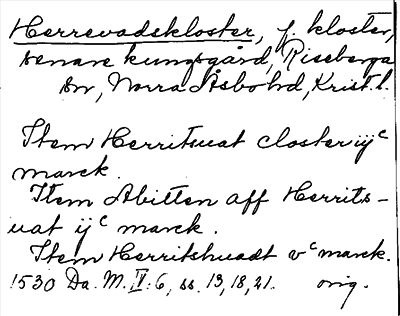 Herrevadskloster, f. kloster,
senare kungsgård, Riseberga
sn, Norra Åsbo hd, Krist. l.
Item Herritwat closter ijᶜ
marck.
Item Abitten aff Herrits-
uat ijᶜ marck.
Item Herritshuadt vᶜ marck.
1530 Da. M. IV: 6, ss. 13, 18, 21. orig.